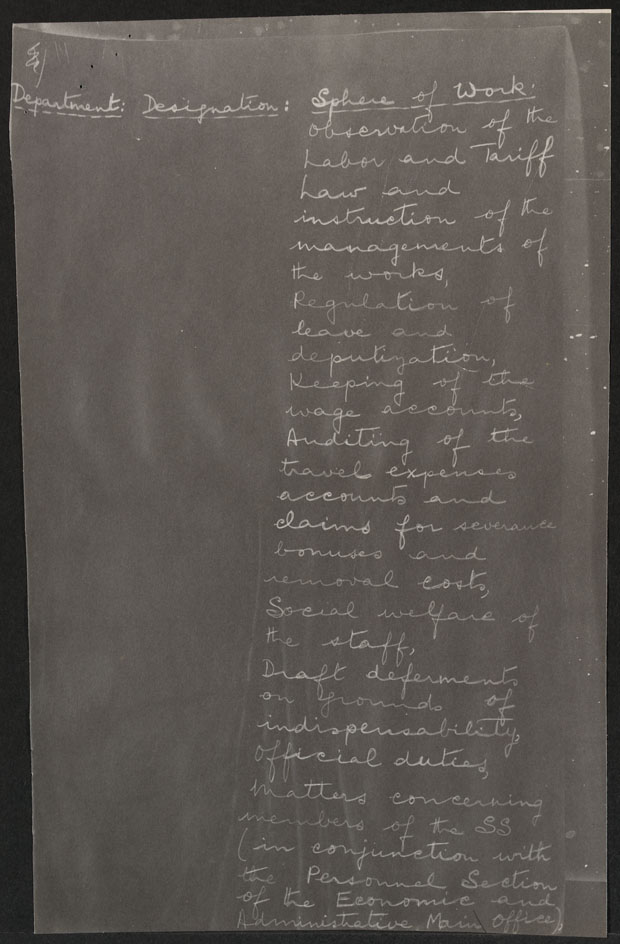 Department: Designation: Sphere of Work:
observation of the
Labor and Tariff
Law and
instruction of the
managements of
the works,
Regulation of
leave and
deputization,
Keeping of the
wage accounts,
Auditing of the
travel expenses
accounts and
claims for severance
bonuses and
removal costs,
Social welfare of
the staff,
Draft deferments
on grounds of
indispensability,
official duties,
Matters concerning
members of the SS
(in conjunction with
the Personnel Section
of the Economic and
Administrative Main Office),